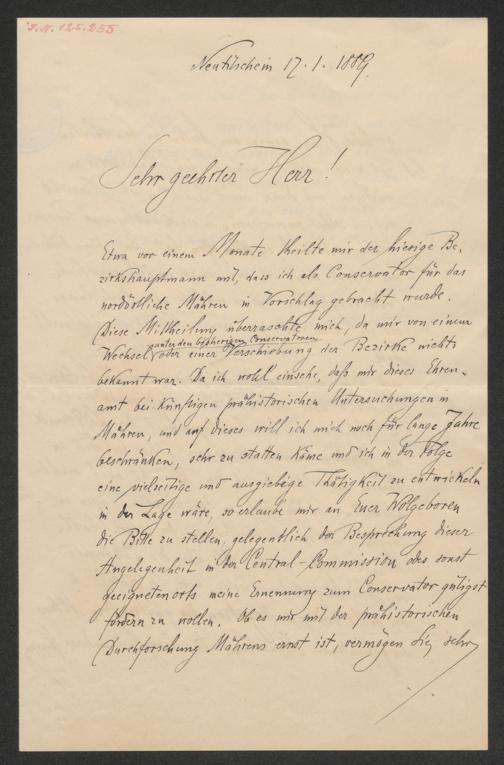 J.N. 125.255
Neutitschein 17.1.1889.
Sehr geehrter Herr!
Etwa vor einem Monate theilte mir der hiesige Be-
zirkshauptmann mit, dass ich als Conservator für das
nordöstliche Mähren in Vorschlag gebracht wurde.
Diese Mittheilung überraschte mich, da mir von einem
unter den bisherigen Conservatoren
Wechsel oder einer Verschiebung der Bezirke nichts
bekannt war. Da ich wohl einsehe, daß mir dieses Ehren-
amt bei künftigen prähistorischen Untersuchungen in
Mähren, und auf dieses will ich mich noch für lange Jahre
beschränken, sehr zu statten käme und ich in der Folge
eine vielseitige und ausgiebige Thätigkeit zu entwickeln
in der Lage wäre, so erlaube mir an Euer Wolgeboren
die Bitte zu stellen, gelegentlich der Besprechung dieser
Angelegenheit in der Central-Commission oder sonst
geeignetenorts meine Ernennung zum Conservator gütigst
fördern zu wollen. Ob es mir mit der prähistorischen
Durchforschung Mährens ernst ist, vermögen Sie, sehr
./.